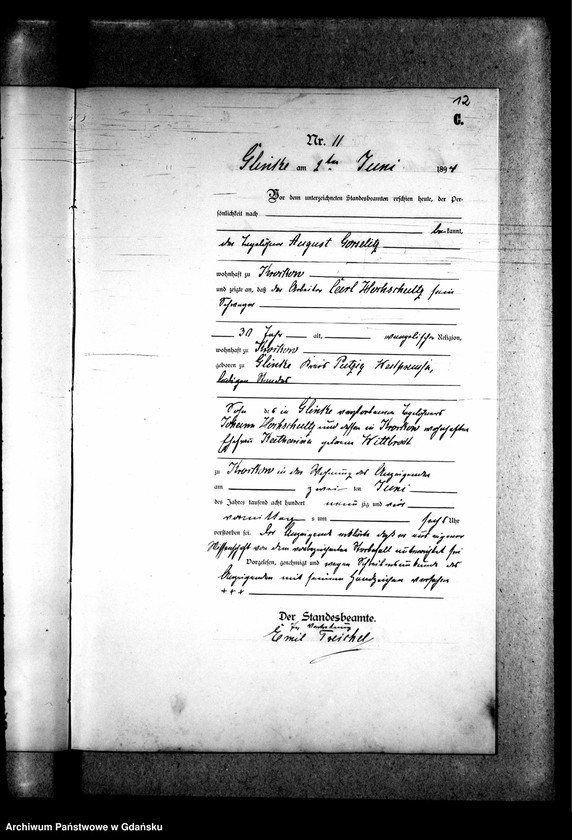 12
C.
Nr. 11
Glinke am 2ten Juni 1894
Vor dem unterzeichneten Standesbeamten erschien heute, der Per-
sönlichkeit nach
be kannt,
der August
wohnhaft zu Krockow
und zeigte an, daß der Arbeiter Carl sein
Schwager
30 Jahr alt, evangelischer Religion,
wohnhaft zu Krockow
geboren zu Glinke Kreis Putzig Westpreuß,
ledigen Standes
Sohn des in Glinke verstorbenen
Johann und dessen in Krockow wohnhaften
Ehefrau Katharina geborene Wittbrodt
zu Krockow in der Wohnung des Anzeigenden
am zwei ten Juni
des Jahres tausend acht hundert neun zig und vier
vormittags um sechs Uhr
verstorben sei. Der Anzeigende erklärte daß er aus eigener
Wissenschaft von dem vorbezeichneten Sterbefall unterrichtet sei
Vorgelesen, genehmigt und wegen Schreibensunkunde des
Anzeigenden mit seinem Handzeichen versehen
+++
Der Standesbeamte.
In Vertretung
Emil Treichel
Archiwum Państwowe w Gdańsku